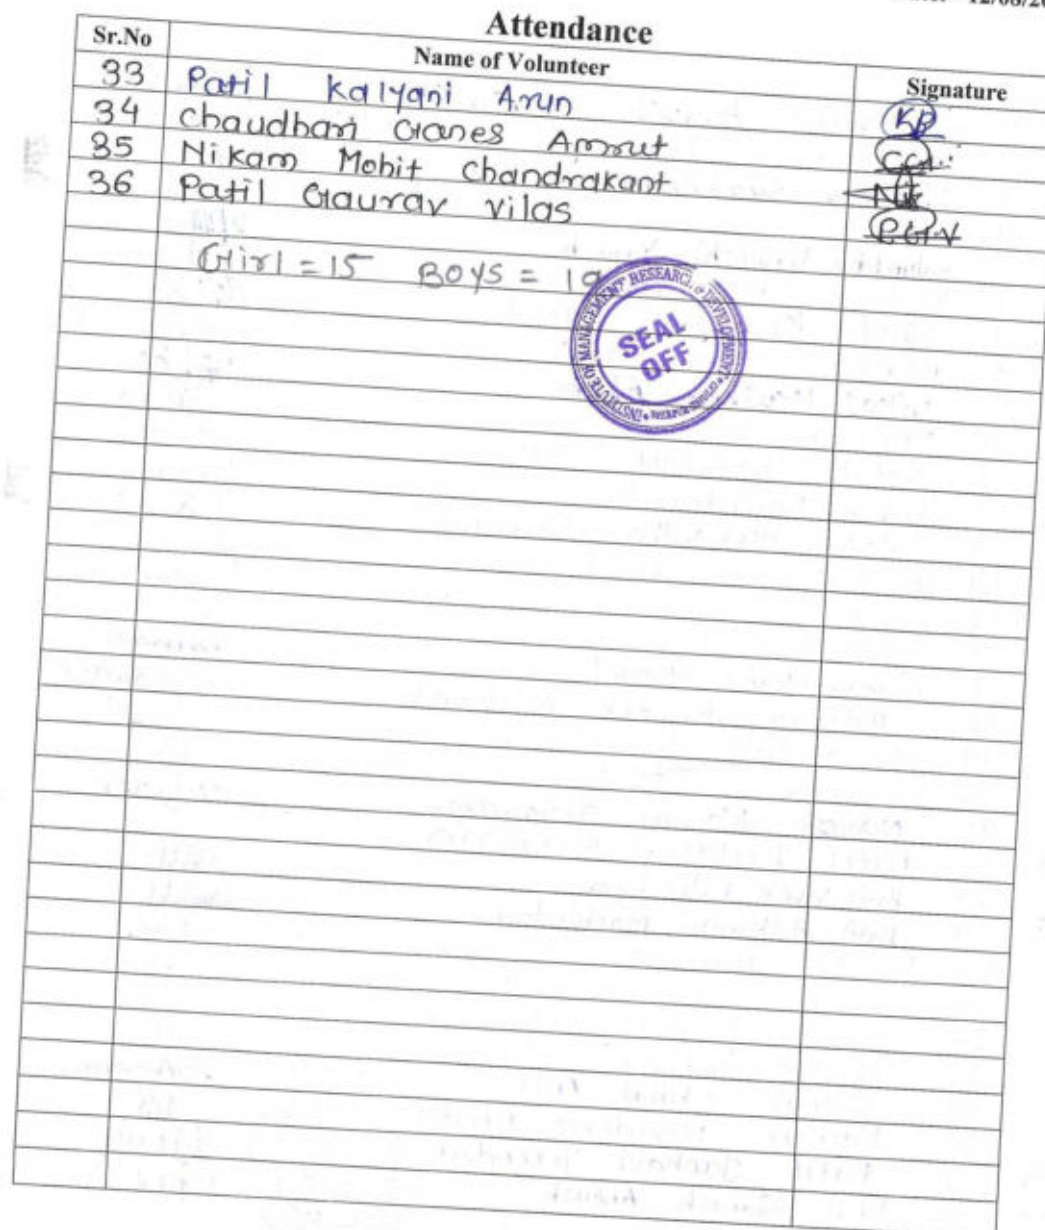 12/08/20
Attendance
Sr.No Name of Volunteer Signature
33 Patil Kalyani Arun KP
34 Chaudhari Ganes Amrut
35 Nikam Mohit Chandrakant
36 Patil Gaurav Vilas P.G.V
Girl = 15 Boys = 19
INSTITUTE OF MANAGEMENT RESEARCH & DEVELOPMENT
SEAL
OFF